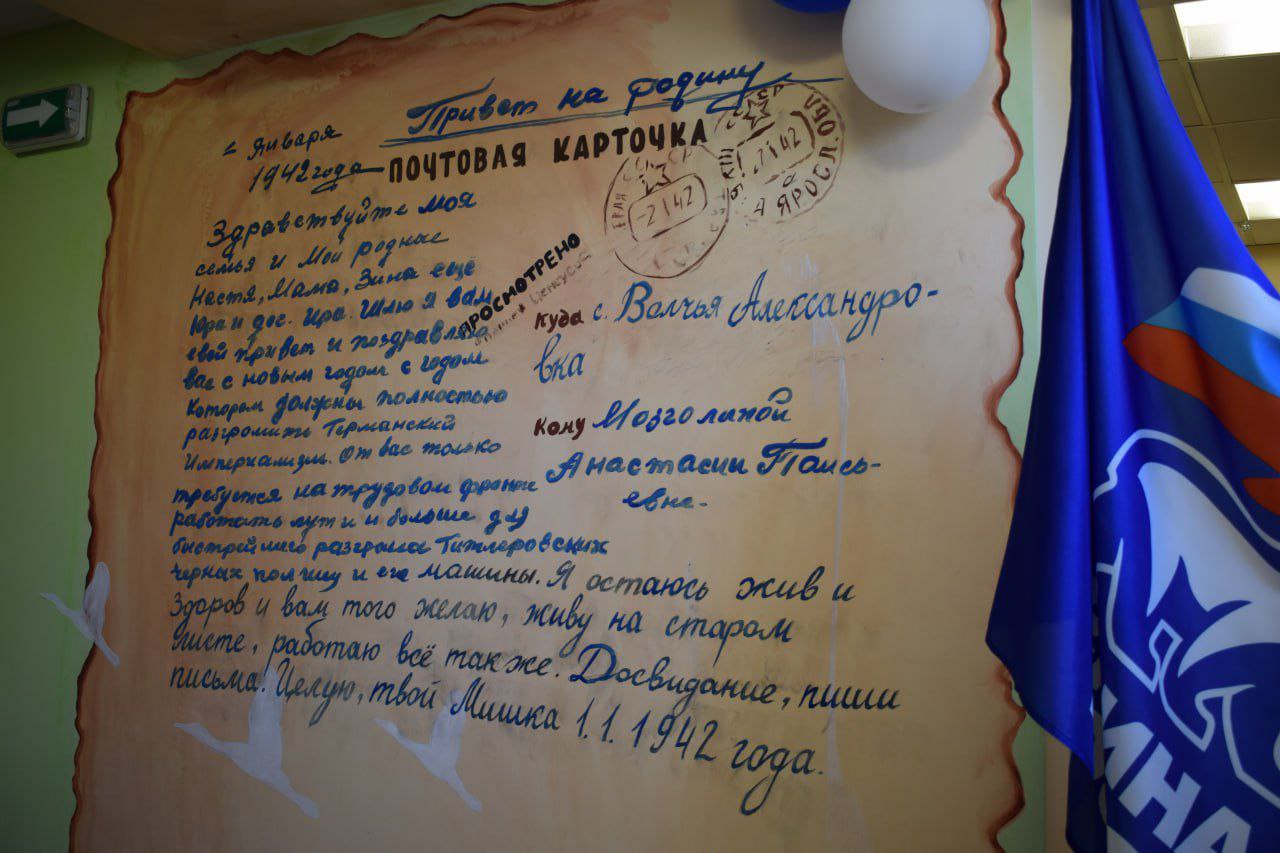 Привет на родину
Января
1942 года
ПОЧТОВАЯ КАРТОЧКА
-2 1 42
7 1 42
ЯРОСЛ
Здравствуйте моя
семья и мои родные
Настя, Мама, Зина ещё
Юра и доч. Ира. Шлю я вам
свой привет и поздравляю
вас с новым годом с годом
котором должны полностью
разгромить Германский
Империализм. От вас только
требуется на трудовом фронте
работать и больше для
быстрейшего разгрома Гитлеровских
черных полчищ и его машины. Я остаюсь жив и
здоров и вам того желаю, живу на старом
мисте, работаю всё также. Досвидание, пиши
письма. Целую, твой Мишка 1.1.1942 года.
ПРОСМОТРЕНО
Куда с. Волчья Александро-
вка
Кому Мозголиной
Анастасии Паисъ-
евне.